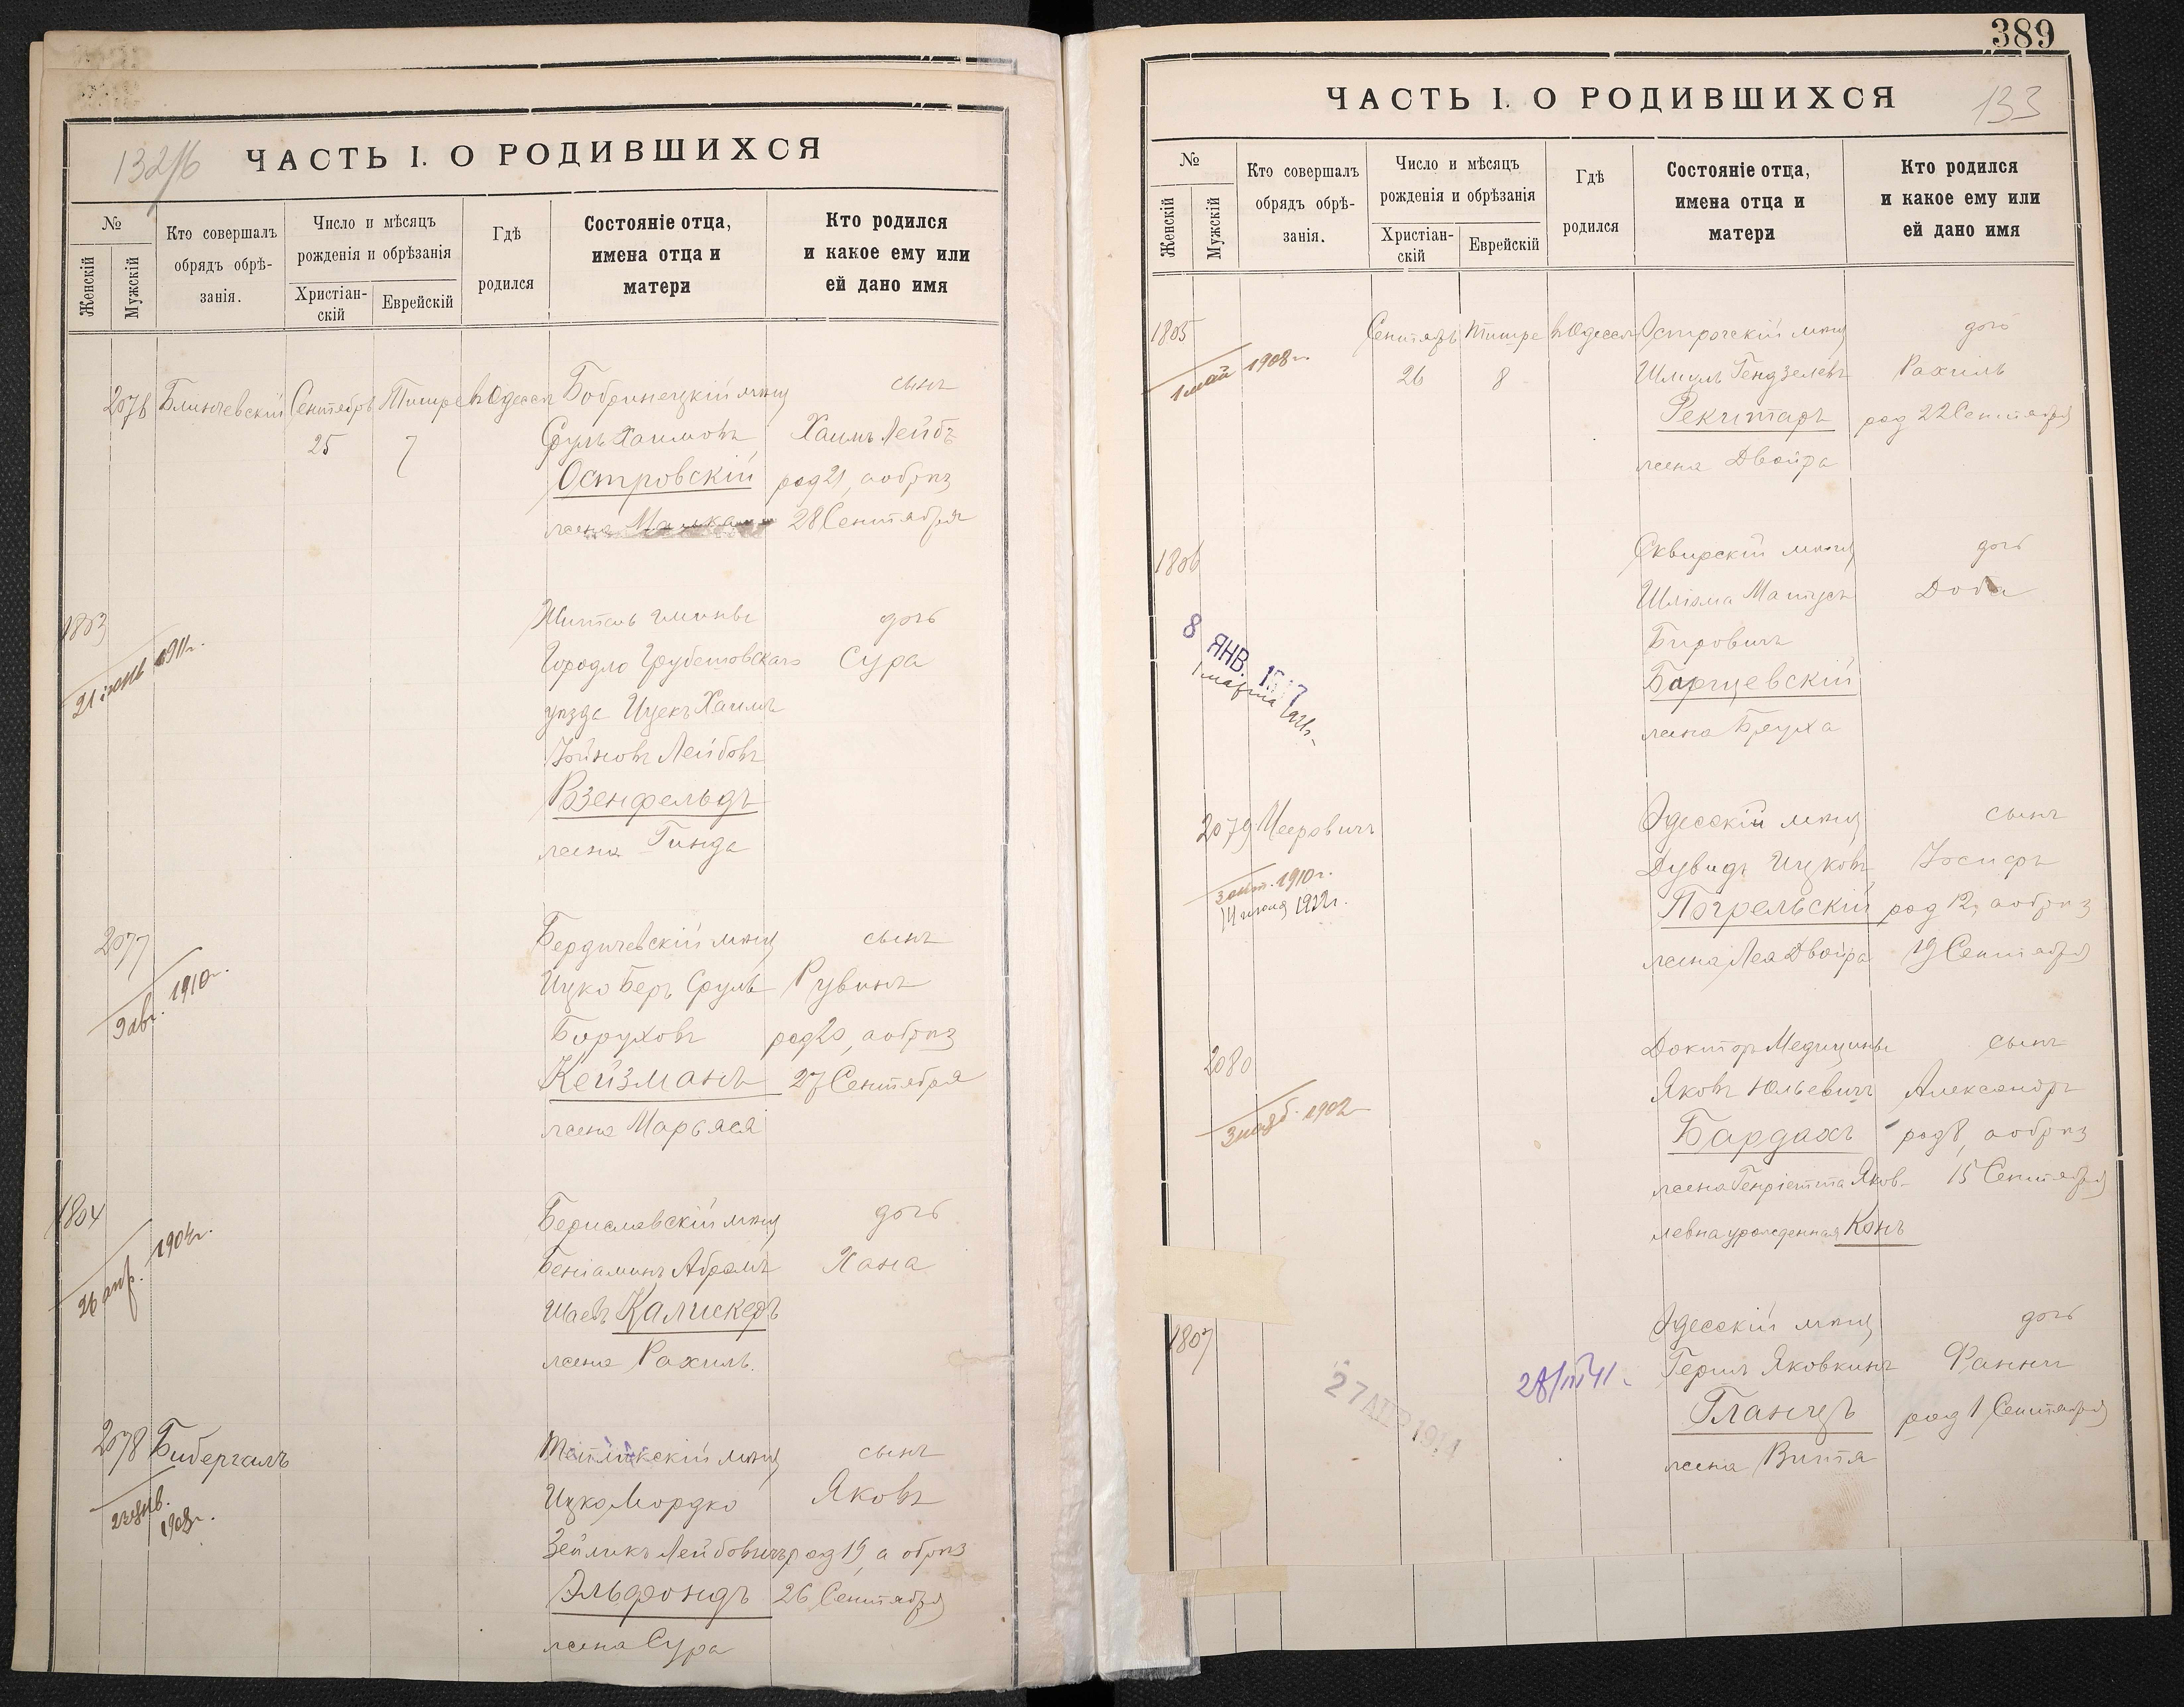 132/б
ЧАСТЬ I. О РОДИВШИХСЯ
№
Женскій
Мужскій
Кто совершалъ
обрядъ обрѣ-
занія.
Число и мѣсяцъ
рожденія и обрѣзанія
Христіан-
скій
Еврейскій
Гдѣ
родился
Состояніе отца,
имена отца и
матери
Кто родился
и какое ему или
ей дано имя
2076 Блинчевскій Сентябрь Тишре въ Одессѣ Бобринецкій мѣщ сынъ
25 7 Сруль Хаимовъ Хаимъ Лейбъ
Островскій род 21, а обрѣз
жена 28 Сентября
1803 Житель гмины дочь
Городло Грубешовскаго Сура
21 1911 г.
уѣзда Ицекъ Хаимъ
Лейбовъ
Розенфельдъ
жена Гинда
2077 Бердичевскій мѣщ сынъ
9 авг. 1910 г.
Ицко Беръ Сруль Рувинъ
Боруховъ род 20, а обрѣз
Кейзманъ 27 Сентября
жена Марьяся
1804 Бериславскій мѣщ дочь
26 апр. 1904 г.
Беніаминъ Абрамъ Хана
Шаевъ Калискеръ
жена Рахиль.
2078 Бибергалъ мѣщ сынъ
23 янв. 1908 г.
Ицко Мордко Яковъ
Зейликъ Лейбовичъ род 19, а обрѣз
Эльфондъ 26 Сентября
жена Сура
389
133
ЧАСТЬ I. О РОДИВШИХСЯ
№
Женскій
Мужскій
Кто совершалъ
обрядъ обрѣ-
занія.
Число и мѣсяцъ
рожденія и обрѣзанія
Христіан-
скій
Еврейскій
Гдѣ
родился
Состояніе отца,
имена отца и
матери
Кто родился
и какое ему или
ей дано имя
1805 Сентябрь Тишре въ Одессѣ Острогскій мѣщ дочь
1 май 1908 г.
26 8 Шмуль Гендзелевъ Рахиль
Рекчтаръ род 22 Сентября
жена Двойра
1806 Сквирскій мѣщ дочь
Шліома Матусъ Доба
8 ЯНВ.
1 марта
Бировичъ
Борщевскій
жена Бруха
2079 Мееровичъ Одесскій мѣщ сынъ
1910 г.
14 1922 г.
Дувидъ Ицковъ Іосифъ
Погрельскій род 12, а обрѣз
жена Лея Двойра 19 Сентября
2080 Докторъ Медицины сынъ
3 нояб. 1902
Яковъ Юльевичъ Александръ
Бардахъ род 8, а обрѣз
жена Генріетта Яков- 15 Сентября
левна урожденная Канъ
1807 Одесскій мѣщ дочь
27 АПР 1914
28/III 41 г.
Гершъ Яковкинъ Фанни
Гланцеръ род 1 Сентября
жена Витя